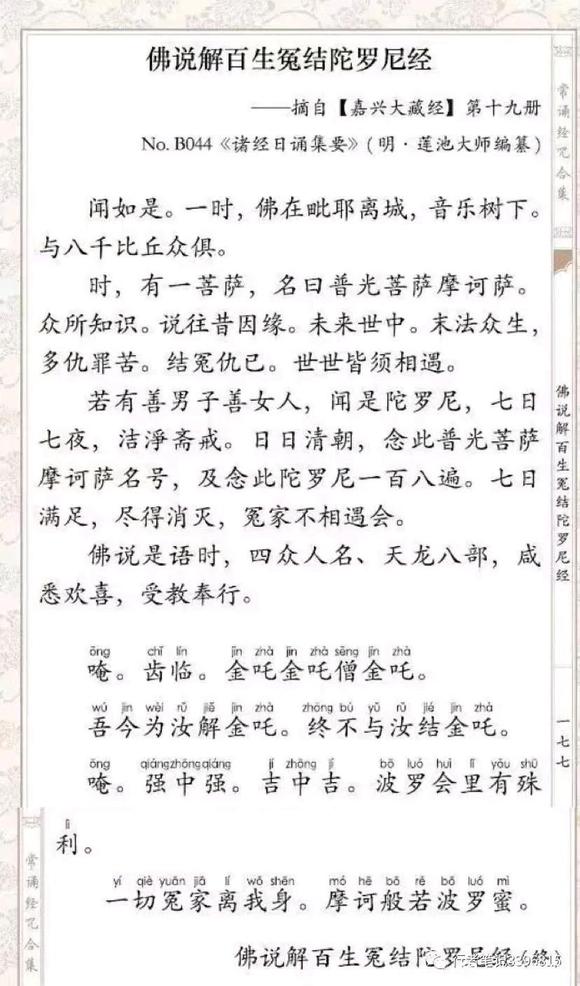 佛说解百生冤结陀罗尼经
——摘自【嘉兴大藏经】第十九册
No. B044《诸经日诵集要》(明·莲池大师编纂)
闻如是。一时，佛在毗耶离城，音乐树下。
与八千比丘众俱。
时，有一菩萨，名曰普光菩萨摩诃萨。
众所知识。说往昔因缘。未来世中。末法众生，
多仇罪苦。结冤仇已。世世皆须相遇。
若有善男子善女人，闻是陀罗尼，七日
七夜，洁淨斋戒。日日清朝，念此普光菩萨
摩诃萨名号，及念此陀罗尼一百八遍。七日
满足，尽得消灭，冤家不相遇会。
佛说是语时，四众人名、天龙八部，咸
悉欢喜，受教奉行。
ōng chǐ lín jīn zhà jīn zhà sēng jīn zhà
唵。齿临。金吒金吒僧金吒。
wú jīn wèi rǔ jiě jīn zhà zhōng bú yǔ rǔ jié jīn zhà
吾今为汝解金吒。终不与汝结金吒。
ōng qiáng zhōng qiáng jí zhōng jí bō luó huì lǐ yǒu shū
唵。强中强。吉中吉。波罗会里有殊
lì
利。
yí qiè yuān jiā lí wǒ shēn mó hē bō rě bō luó mì
一切冤家离我身。摩诃般若波罗蜜。
佛说解百生冤结陀罗尼经(终)
常诵经咒合集
佛说解百生冤结陀罗尼经
一七七
常诵经咒合集